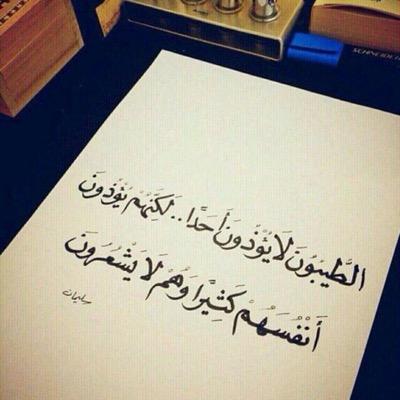 الطَّيِّبُونَ لَا يُؤْذُونَ أَحَدًا.. لَكِنَّهُمْ يُؤْذُونَ
أَنْفُسَهُمْ كَثِيرًا وَهُمْ لَا يَشْعُرُونَ
سليمان
SCHNEIDER